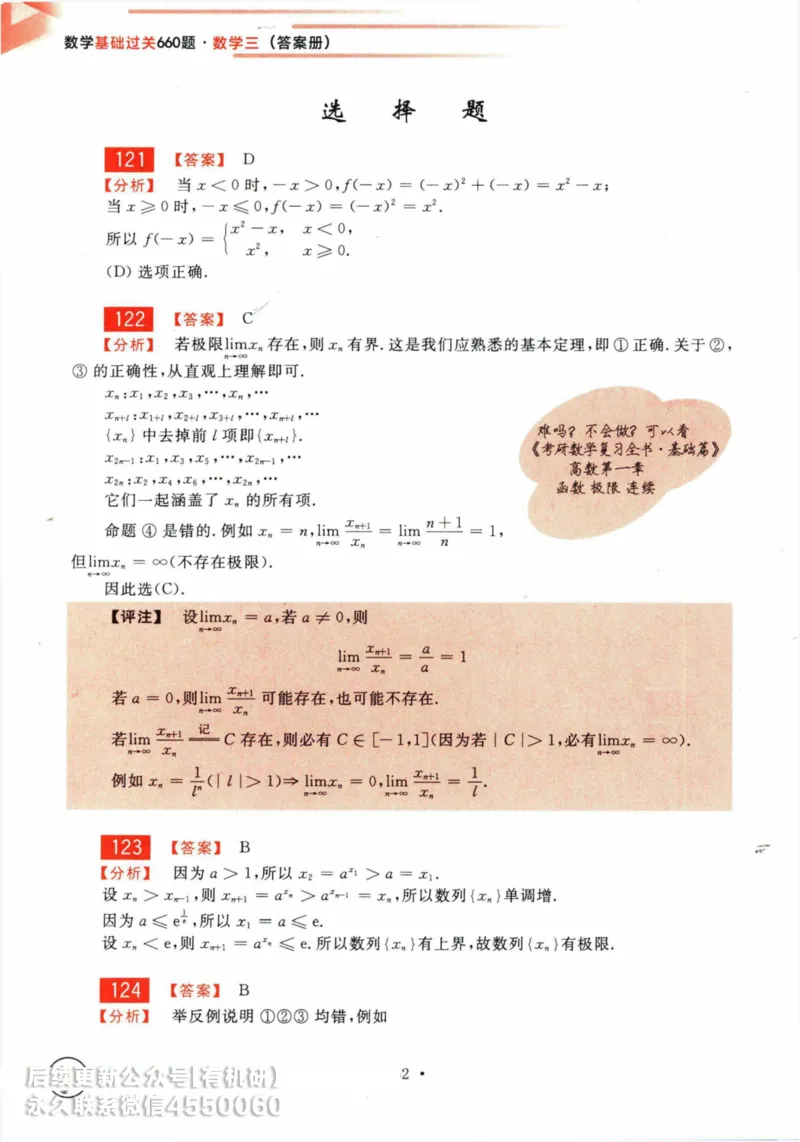 数学基础过关660题·数学三（答案册）
选 择 题
121 【答案】 D
【分析】 当 x＜0 时,－x＞0,f(－x) = (－x)²＋(－x) = x²－x;
当 x⩾0 时,－x⩽0,f(－x) = (－x)² = x².
所以 f(－x) = { x²－x, x＜0,
x², x⩾0.
(D) 选项正确.
122 【答案】 C
【分析】 若极限 lim_{n→∞} xₙ 存在,则 xₙ 有界.这是我们应熟悉的基本定理,即 ① 正确.关于 ②,
③ 的正确性,从直观上理解即可.
xₙ:x₁,x₂,x₃,…,xₙ,…
x_{n+l}:x_{1+l},x_{2+l},x_{3+l},…,x_{n+l},…
{xₙ} 中去掉前 l 项即{x_{n+l}}.
x_{2n−1}:x₁,x₃,x₅,…,x_{2n−1},…
x_{2n}:x₂,x₄,x₆,…,x_{2n},…
它们一起涵盖了 xₙ 的所有项.
难吗? 不会做? 可以看
《考研数学复习全书·基础篇》
高数第一章
函数 极限 连续
命题 ④ 是错的.例如 xₙ = n, lim_{n→∞} x_{n+1}/xₙ = lim_{n→∞} (n+1)/n = 1,
但 lim_{n→∞} xₙ = ∞(不存在极限).
因此选(C).
【评注】 设 lim_{n→∞} xₙ = a,若 a ≠ 0,则
lim_{n→∞} x_{n+1}/xₙ = a/a = 1
若 a = 0,则 lim_{n→∞} x_{n+1}/xₙ 可能存在,也可能不存在.
若 lim_{n→∞} x_{n+1}/xₙ ==记== C 存在,则必有 C∈[－1,1](因为若|C|＞1,必有 lim_{n→∞} xₙ = ∞).
例如 xₙ = 1/lⁿ (|l|＞1)⇒ lim_{n→∞} xₙ = 0, lim_{n→∞} x_{n+1}/xₙ = 1/l.
123 【答案】 B
【分析】 因为 a＞1,所以 x₂ = a^{x₁}＞a = x₁.
设 xₙ＞x_{n−1},则 x_{n+1} = a^{xₙ}＞a^{x_{n−1}} = xₙ,所以数列{xₙ}单调增.
因为 a⩽e^{1/e},所以 x₁ = a⩽e.
设 xₙ＜e,则 x_{n+1} = a^{xₙ}⩽e.所以数列{xₙ}有上界,故数列{xₙ}有极限.
124 【答案】 B
【分析】 举反例说明 ①②③ 均错,例如
2 •
后续更新公众号[有机研]
永久联系微信4550060